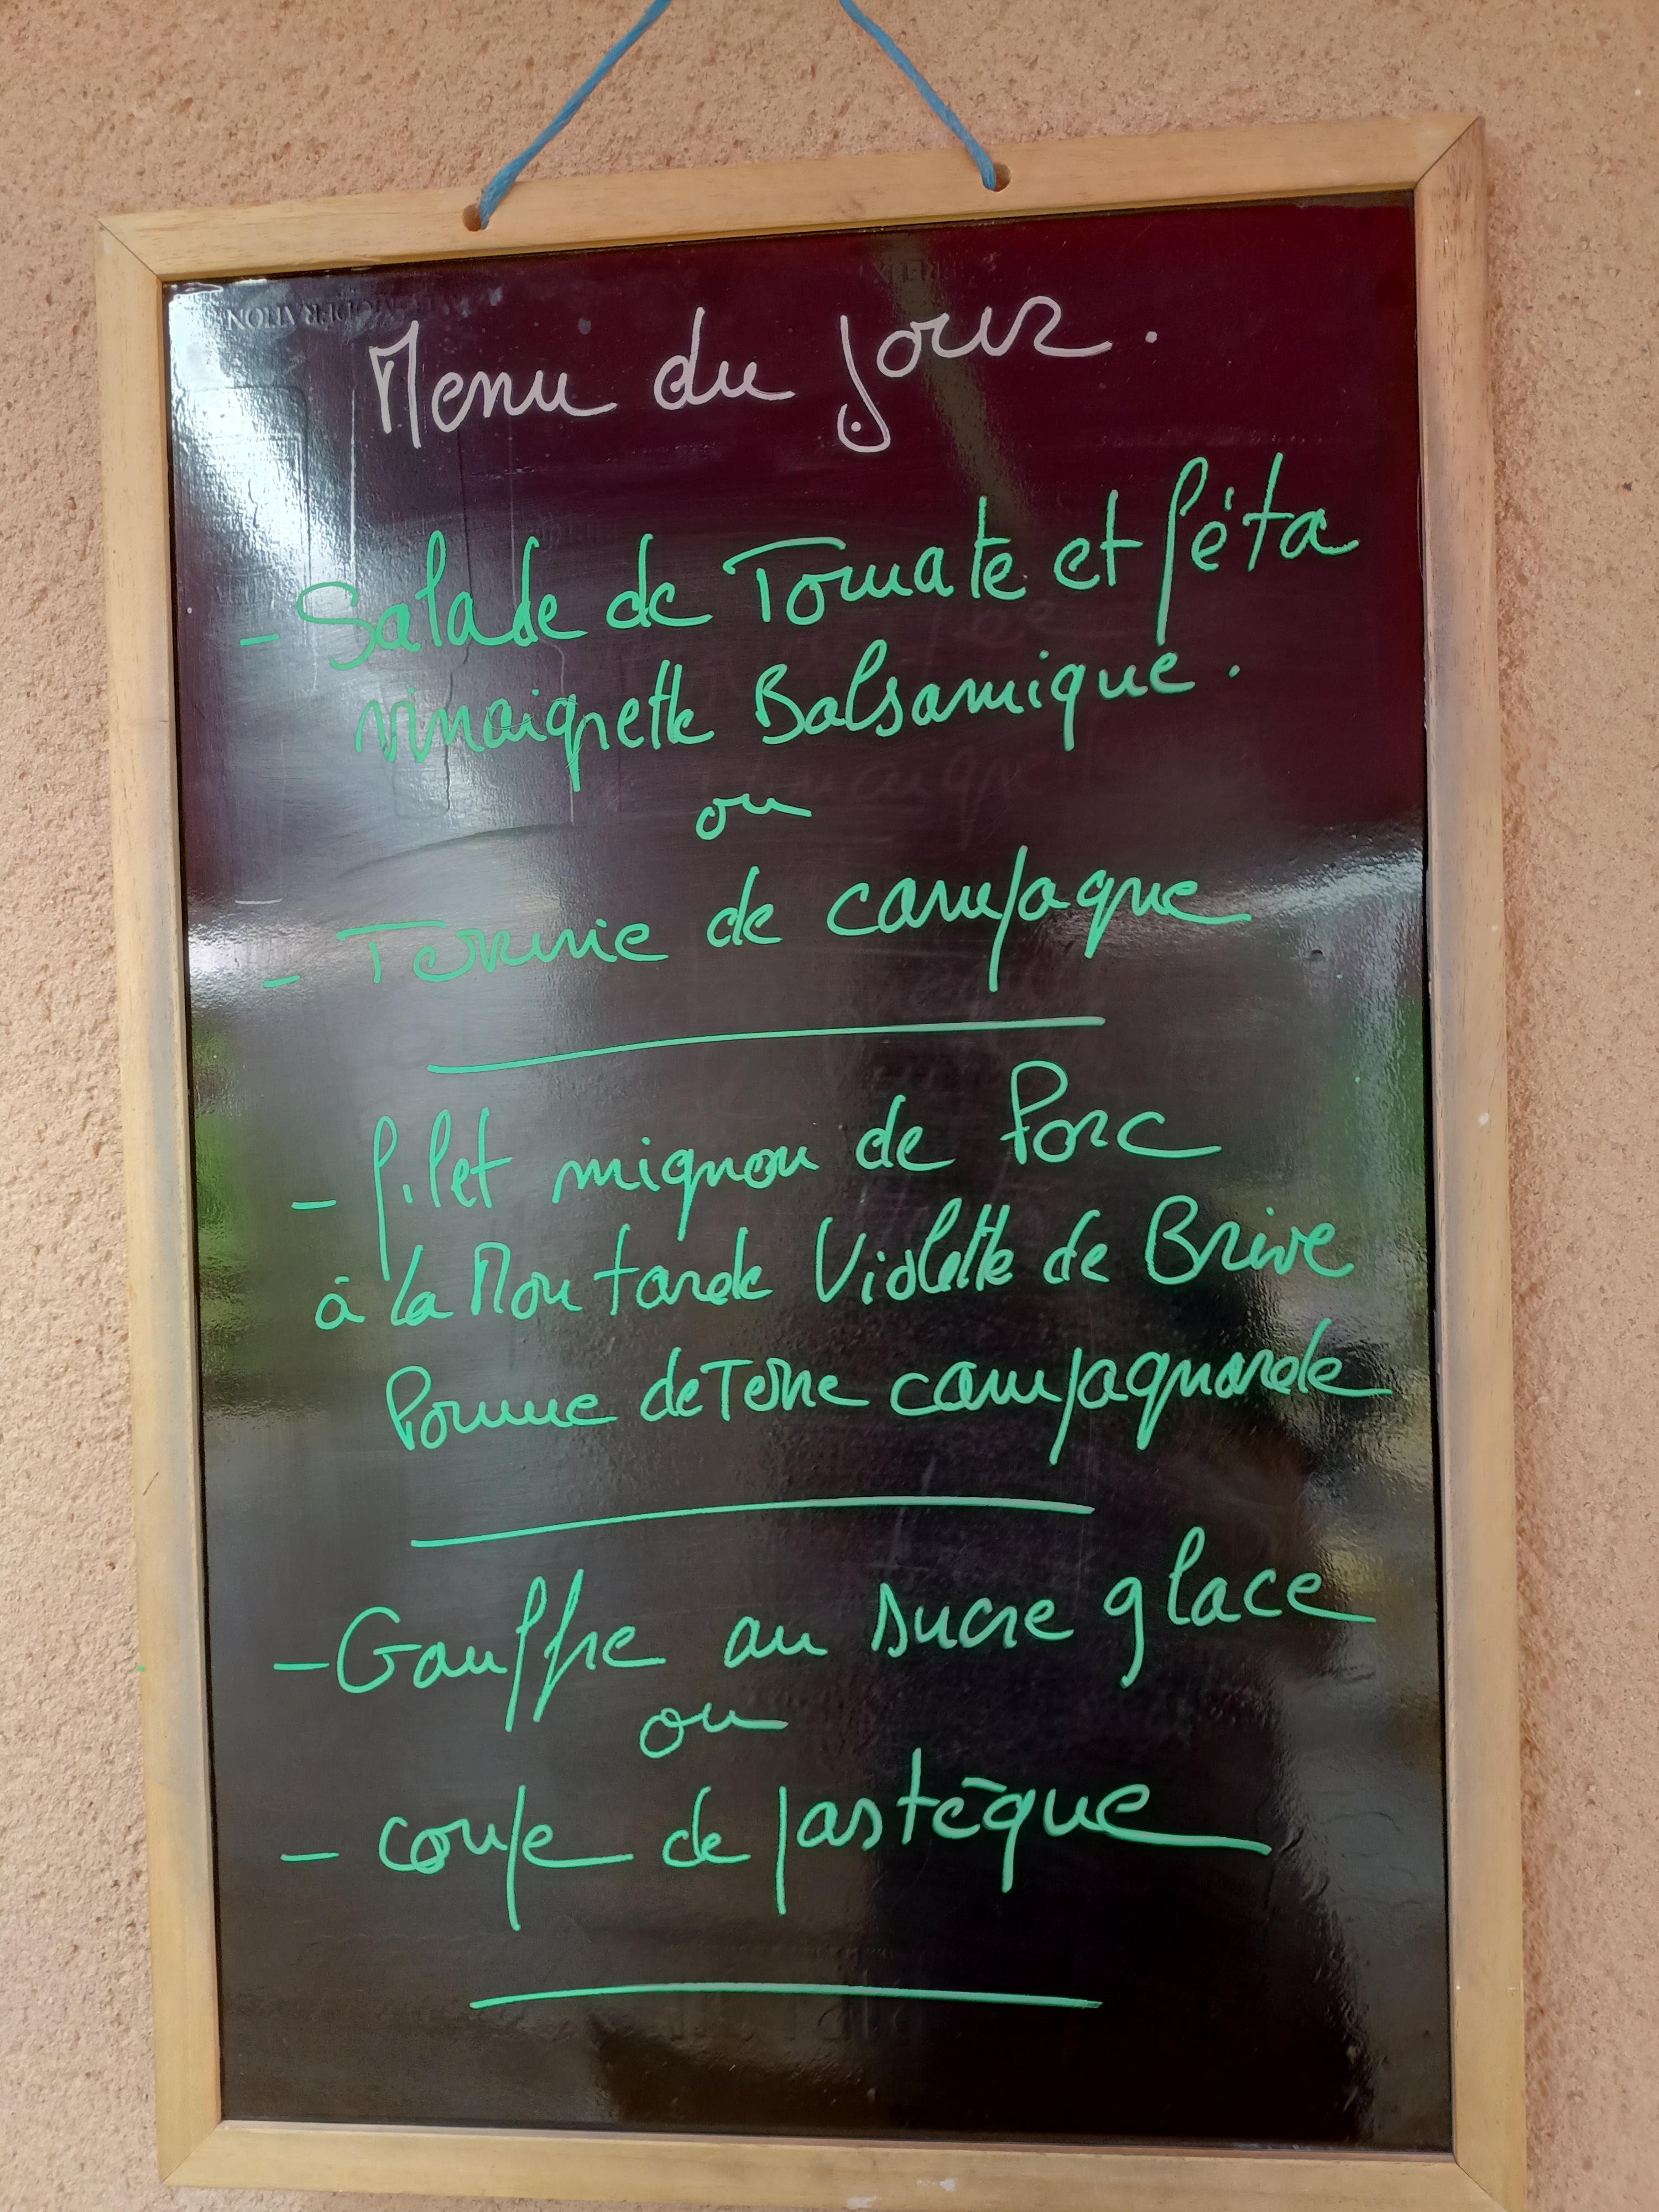 Menu du jour.
- Salade de Tomate et féta
vinaigrette Balsamique.
ou
- Terrine de campagne
- filet mignon de Porc
à la Moutarde Violette de Brive
Pomme de Terre campagnarde
- Gauffre au sucre glace
ou
- coupe de pastèque